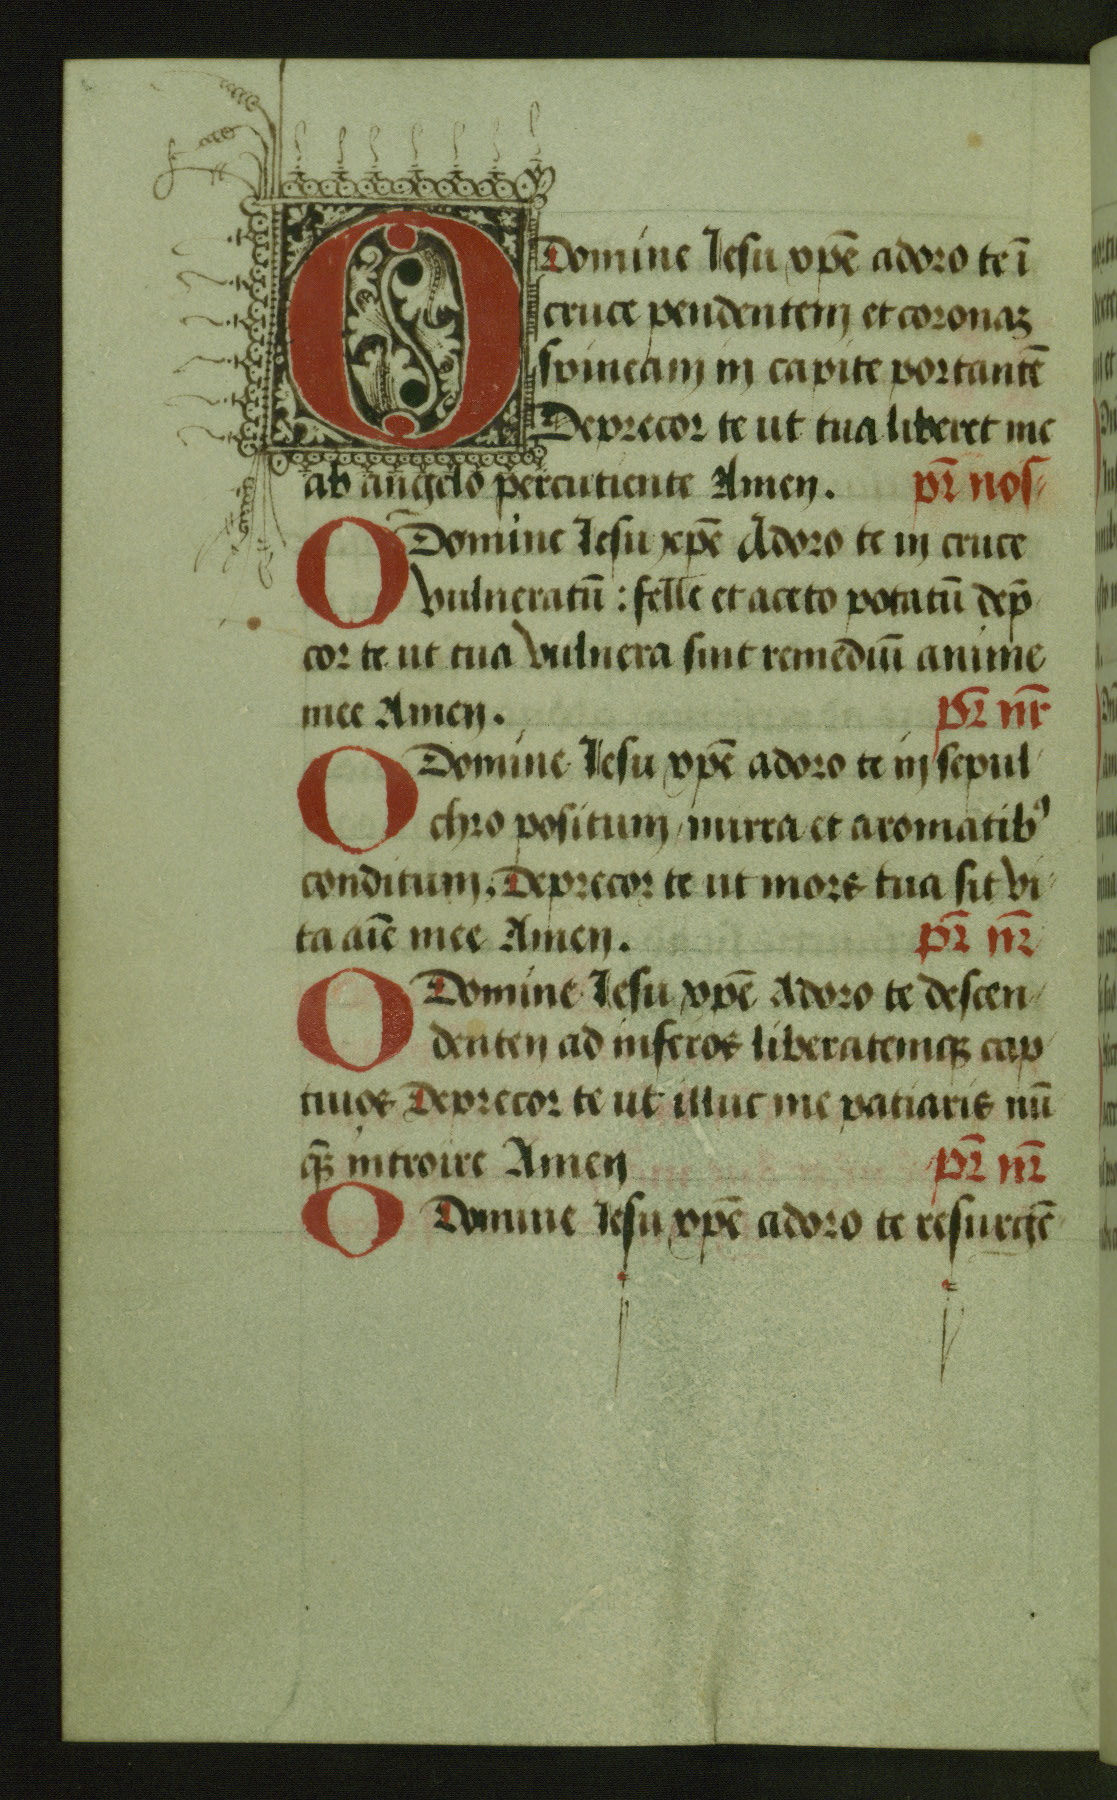 O Domine Iesu xpē adoro te ī
cruce pendentem et coronaꝫ
spineam in capite portantē
Deprecor te ut tua liberet me
ab angelo percutiente Amen. pr̄ nos
O Domine Iesu xpē Adoro te in cruce
vulneratū : felle et aceto potatū dep̄
cor te ut tua vulnera sint remediū anime
mee Amen. pr̄ nr̄
O Domine Iesu xpē adoro te in sepul
chro positum mirra et aromatibꝰ
conditum. Deprecor te ut mors tua sit vi
ta aīe mee Amen. pr̄ nr̄
O Domine Iesu xpē Adoro te descen
denten ad inferos liberatemqꝫ cap
tiuos Deprecor te ut illuc me patiaris nū
qꝫ introire Amen pr̄ nr̄
O Domine Iesu xpē adoro te resurgē